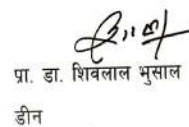 प्रा. डा. शिवलाल भुसाल
डीन